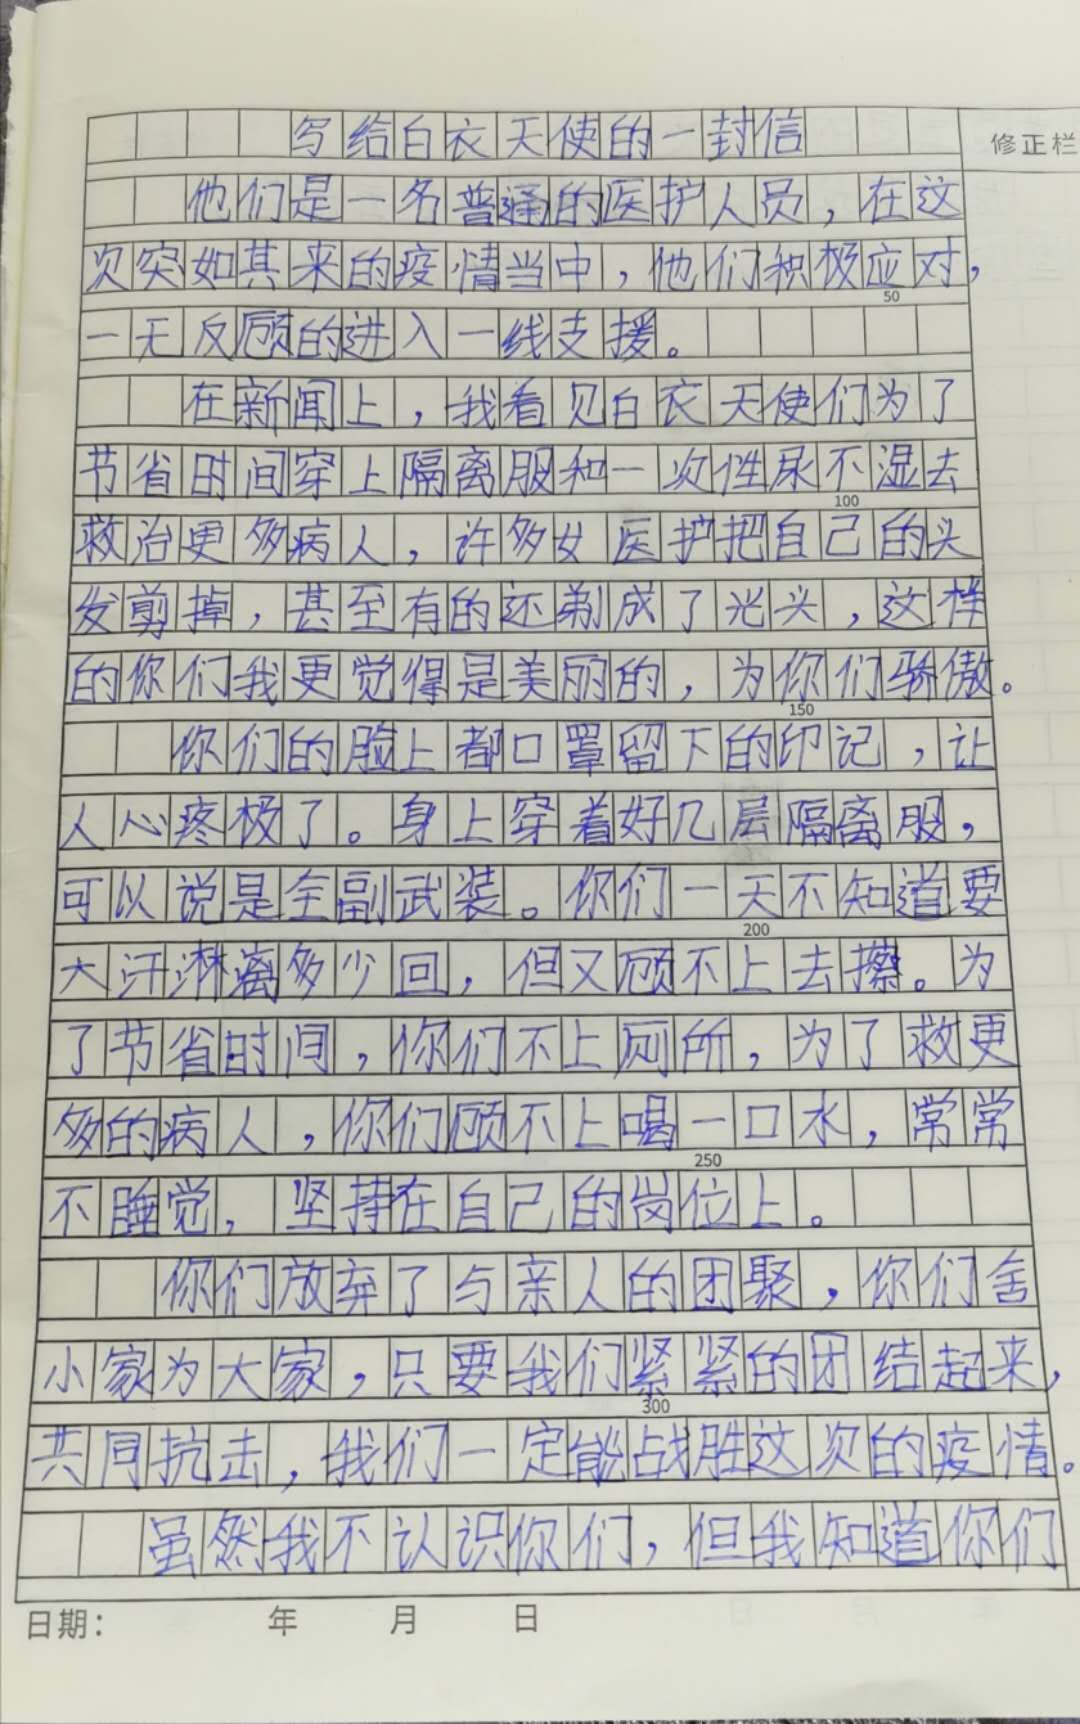 写给白衣天使的一封信
修正栏
他们是一名普通的医护人员，在这
次突如其来的疫情当中，他们积极应对，
50
一无反顾的进入一线支援。
在新闻上，我看见白衣天使们为了
节省时间穿上隔离服和一次性尿不湿去
100
救治更多病人，许多女医护把自己的头
发剪掉，甚至有的还剃成了光头，这样
的你们我更觉得是美丽的，为你们骄傲。
150
你们的脸上都口罩留下的印记，让
人心疼极了。身上穿着好几层隔离服，
可以说是全副武装。你们一天不知道要
200
大汗淋漓多少回，但又顾不上去擦。为
了节省时间，你们不上厕所，为了救更
多的病人，你们顾不上喝一口水，常常
250
不睡觉，坚持在自己的岗位上。
你们放弃了与亲人的团聚，你们舍
小家为大家，只要我们紧紧的团结起来，
300
共同抗击，我们一定能战胜这次的疫情。
虽然我不认识你们，但我知道你们
日期： 年 月 日